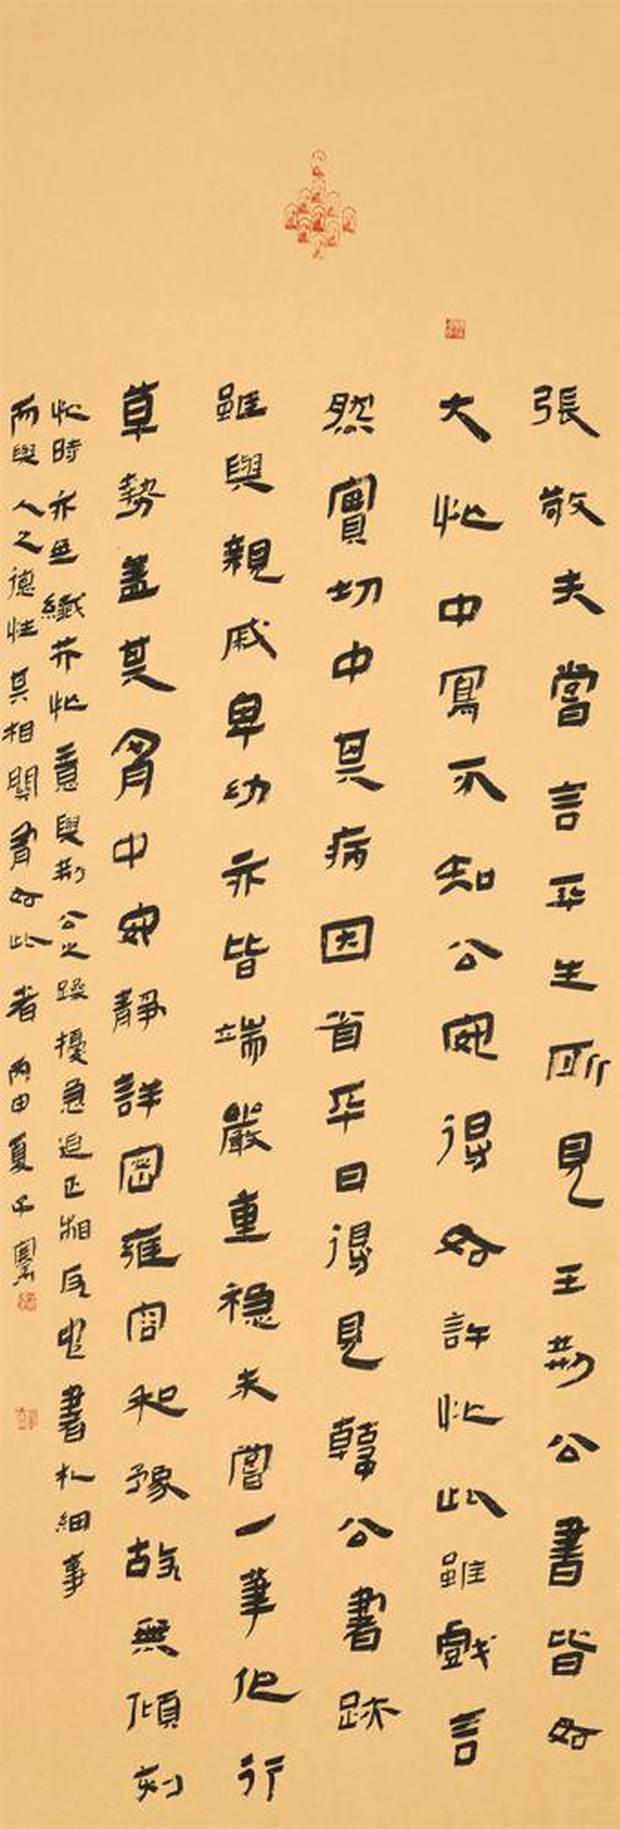 張敬夫嘗言平生所見王荆公書皆如
大忙中寫不知公安得如許忙此雖戲言
然實切中其病因省平日得見韓公書跡
雖與親戚卑幼亦皆端嚴重穩未嘗一筆作行
草勢盖其胷中安靜詳密雍容和豫故無傾刻
忙時亦無纖芥忙意與荆公之躁擾急迫正相反也書札細事
而與人之德性其相關有如此者 丙申夏